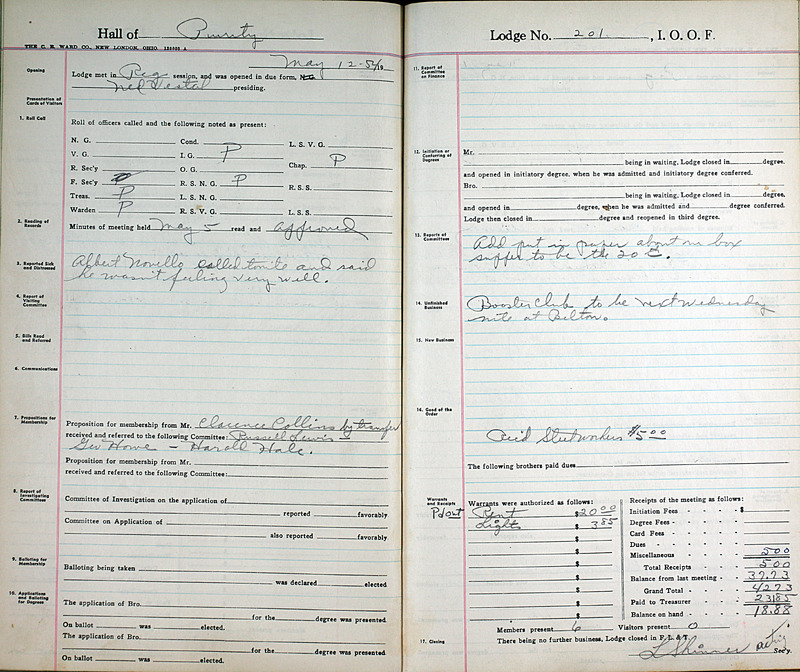 Hall of Purity
THE C. E. WARD CO., NEW LONDON, OHIO.
May 12-54 19
Opening
Lodge met in Reg session, and was opened in due form, N.G.
Ned Vestal presiding.
Presentation of Cards of Visitors
1. Roll Call
Roll of officers called and the following noted as present:
N. G. Cond. L. S. V. G.
V. G. I. G. P Chap. P
R. Sec'y O. G.
F. Sec'y P R. S. N. G. P R. S. S.
Treas. P L. S. N. G.
Warden P R. S. V. G. L. S. S.
2. Reading of Records
Minutes of meeting held May 5 read and approved
3. Reported Sick and Distressed
Albert Noville called tonite and said
he wasn't feeling very well.
4. Report of Visiting Committee
5. Bills Read and Referred
6. Communications
7. Propositions for Membership
Proposition for membership from Mr. Clarence Collins by transfer
received and referred to the following Committee: Russell Lewis -
Geo Howe - Harold Hale.
Proposition for membership from Mr.
received and referred to the following Committee:
8. Report of Investigating Committees
Committee of Investigation on the application of
reported favorably
Committee on Application of
also reported favorably
9. Balloting for Membership
Balloting being taken
was declared elected
10. Applications and Balloting for Degrees
The application of Bro.
for the degree was presented
On ballot was elected.
The application of Bro.
for the degree was presented
On ballot was elected.
Lodge No. 201, I. O. O. F.
11. Report of Committee on Finance
12. Initiation or Conferring of Degrees
Mr.
being in waiting, Lodge closed in degree,
and opened in initiatory degree, when he was admitted and initiatory degree conferred.
Bro.
being in waiting, Lodge closed in degree,
and opened in degree, when he was admitted and degree conferred.
Lodge then closed in degree and reopened in third degree.
13. Reports of Committees
Add put in paper about our box
supper to be the 20th.
14. Unfinished Business
Booster Club to be next Wednesday
nite at Belton.
15. New Business
16. Good of the Order
Paid Steelworkers $5.00
The following brothers paid dues
Warrants and Receipts
Pd out
Warrants were authorized as follows:
Rent $ 20 00
Lights $ 3 85
$
$
$
$
$
$
$
Receipts of the meeting as follows:
Initiation Fees - $
Degree Fees -
Card Fees -
Dues -
Miscellaneous 5 00
Total Receipts 5 00
Balance from last meeting - 37.73
Grand Total - 42 73
Paid to Treasurer - 23 85
Balance on hand - 18.88
Members present 6 Visitors present 0
17. Closing
There being no further business, Lodge closed in F., L. & T.
L Skinner Secy.